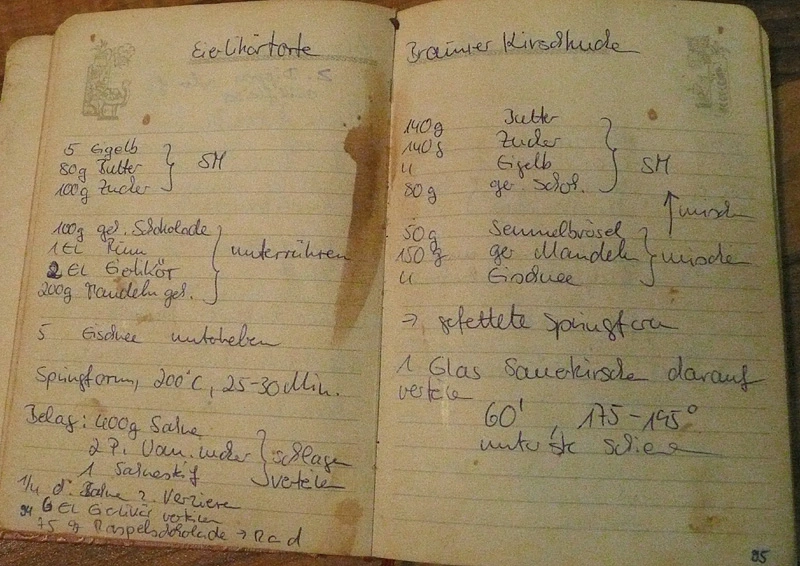 Eierlikörtorte
5 Eigelb
80g Butter
100g Zucker
SM
100g ger. Schokolade
1 EL Rum
2 EL Eierlikör
200g Mandeln ger.
unterrühren
5 Eischnee unterheben
Springform, 200°C, 25-30 Min.
Belag: 400g Sahne
2 P. Van. zucker
1 Sahnestf
schlagen
verteilen
1/4 Sahne z. Verzieren
6 EL Eierlikör verteilen
75 g Raspelschokolade → Rand
94
Brauner Kirschkuchen
140g Butter
140g Zucker
4 Eigelb
80g ger. Schok.
SM
↑ mischen
50g Semmelbrösel
150g ger Mandeln
4 Eischnee
mischen
→ gefettete Springform
1 Glas Sauerkirschen darauf
verteilen
60' , 175-195°
unterste Schiene
95